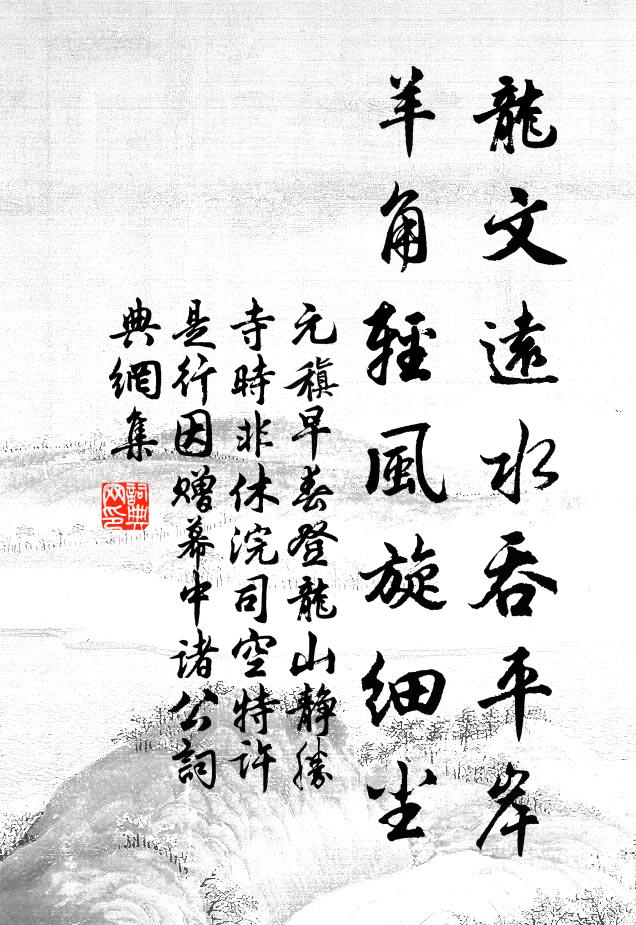 龍文遠水吞平岸
羊角輕風旋細尘
元稹早春登龍山静勝
寺時非休浣司空特许
是行因赠幕中诸公詞
典網集
詞典
网印